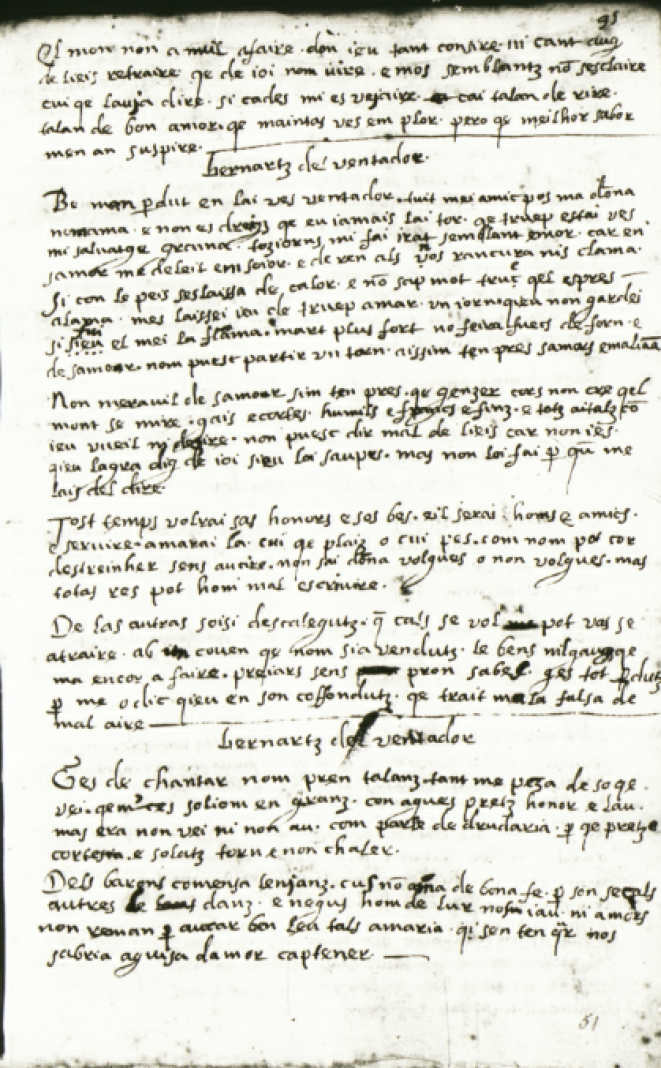 91
El mon non a nuil afaire don ieu tant consire ni cant aug
de lieis retraire qe de ioi nom vire e mos semblantz nō sesclaire
cui qe lauja dire si cades mi es veiaire cai talan de rire
talan de bon amor qe maintas ves em plor pero qe meilhor sabor
men an suspire
bernartz del ventador
Be man pdut en lai ves ventador tuit mei amic pos ma dōna
numama e non es dreitz qe eu iamais lai tor qe truep estai ves
mi salvatge toziorns mi fai irat semblant emor car en
samor me deleit em seior e de ren als nos rancura nis clama
Si con le peis seslaissa de calor e nō sap mot truc qel es pres
alama mes laissei vai de truep amar un iorn non gardei
si sieu el mei la flāma mart plus fort no feira fuecs de forn e
de samor nom puesc partir un torn aissim ten pres samors
Non meravil de samor sim ten pres qe genzer cors non cre qel
mont se mire gais e cortes humils e francs e finz e totz aitalz cō
ieu vueil ni desire non puesc dir mal de lieis car non ies
qieu lagra dig de ioi sieu loi saupes mas non loi sai p qū me
lais del dire
Tost temps volrai sas honors e ses bes eil serai homs e amics
e servire amarai la cui qe plaiz o cui pes com nom pot cor
destreinher sens aucire non sai dōna volgues o non volgues mas
totas res pot hom mal escrivire
De las autras soisi descalegutz q̄ cals se vol pot vas se
atraire ab coven qe nom sia vendutz le bens nilgaug qe
ma encor a faire preiars sens pron sabes ges tot
p me o dic qieu en son coffondutz qe trait mala falsa de
mal aire
bernartz del ventador
Ges de chantar nom pren talanz tant me peza de so qe
vei qem ces soliom en granz con agues pretz honor e lau
mas era non vei ni non au com parle de drudaria p qe pretz e
cortesia e solatz torn e non chaler
Dels barons comensa lenjanz cus nō ama de bona fe p son se cals
autres danz e negus hom de lur nosm iau ni amors
non reman p aucar ben leu tals amaria qi sen ten qr nos
sabria aguisa damor captener
51